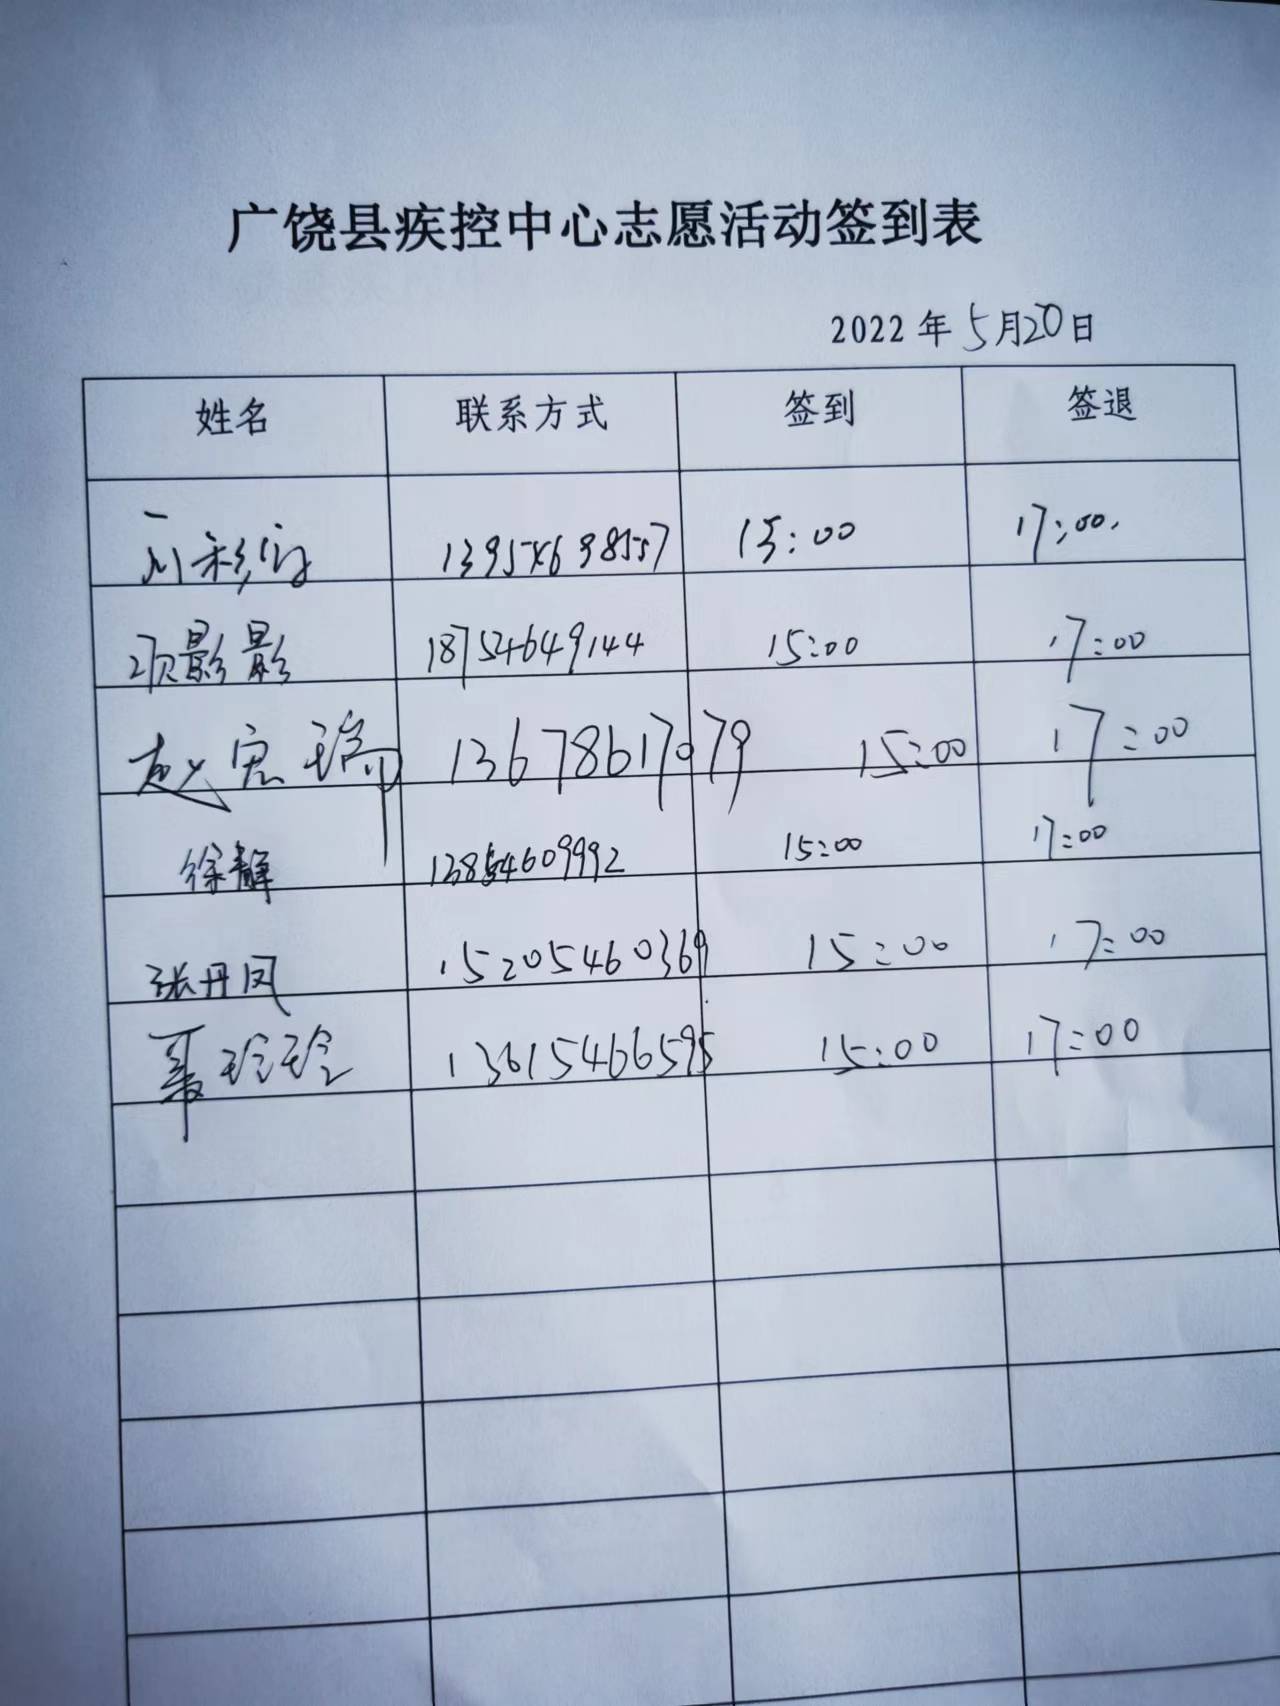 广饶县疾控中心志愿活动签到表
2022年5月20日
姓名 联系方式 签到 签退
15:00 17:00.
项影影 18754649144 15:00 17:00
赵宏瑞 13678617079 15:00 17:00
徐静 13854609992 15:00 17:00
张丹凤 15205460369 15:00 17:00
聂玲玲 13615466595 15:00 17:00